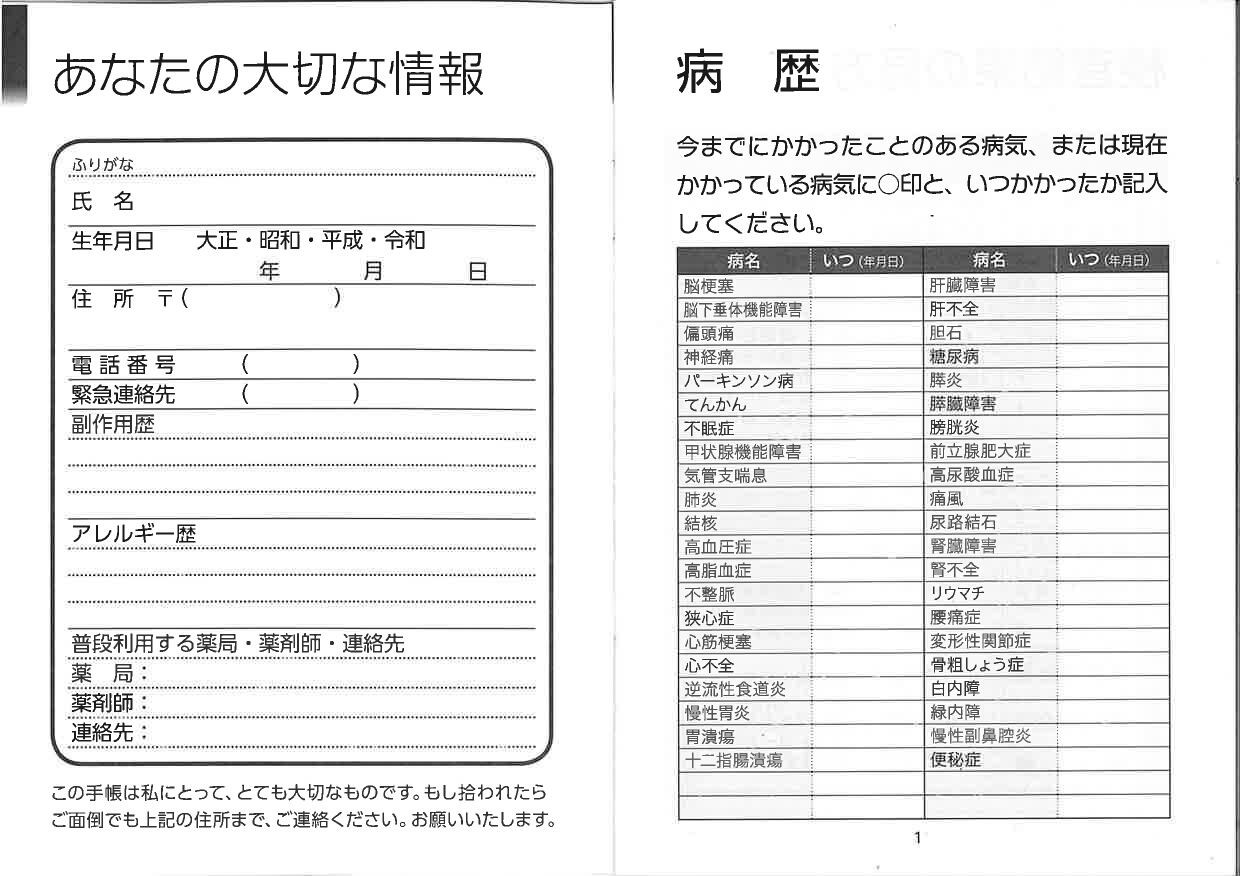 あなたの大切な情報
ふりがな
氏 名
生年月日 大正・昭和・平成・令和
年 月 日
住 所 〒( )
電話番号 ( )
緊急連絡先 ( )
副作用歴
アレルギー歴
普段利用する薬局・薬剤師・連絡先
薬 局：
薬剤師：
連絡先：
この手帳は私にとって、とても大切なものです。もし拾われたら
ご面倒でも上記の住所まで、ご連絡ください。お願いいたします。
病 歴
今までにかかったことのある病気、または現在
かかっている病気に○印と、いつかかったか記入
してください。
病名 いつ(年月日) 病名 いつ(年月日)
脳梗塞 肝臓障害
脳下垂体機能障害 肝不全
偏頭痛 胆石
神経痛 糖尿病
パーキンソン病 膵炎
てんかん 膵臓障害
不眠症 膀胱炎
甲状腺機能障害 前立腺肥大症
気管支喘息 高尿酸血症
肺炎 痛風
結核 尿路結石
高血圧症 腎臓障害
高脂血症 腎不全
不整脈 リウマチ
狭心症 腰痛症
心筋梗塞 変形性関節症
心不全 骨粗しょう症
逆流性食道炎 白内障
慢性胃炎 緑内障
胃潰瘍 慢性副鼻腔炎
十二指腸潰瘍 便秘症
1